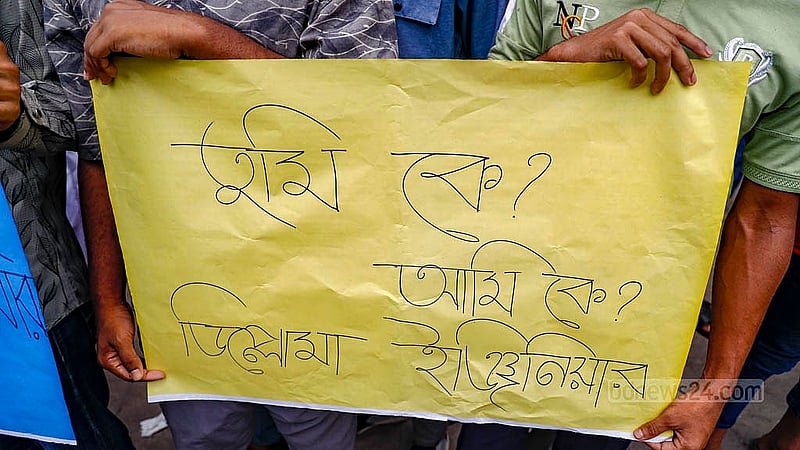 তুমি কে?
আমি কে?
ডিপ্লোমা ইঞ্জিনিয়ার
NCP
bdnews24.com